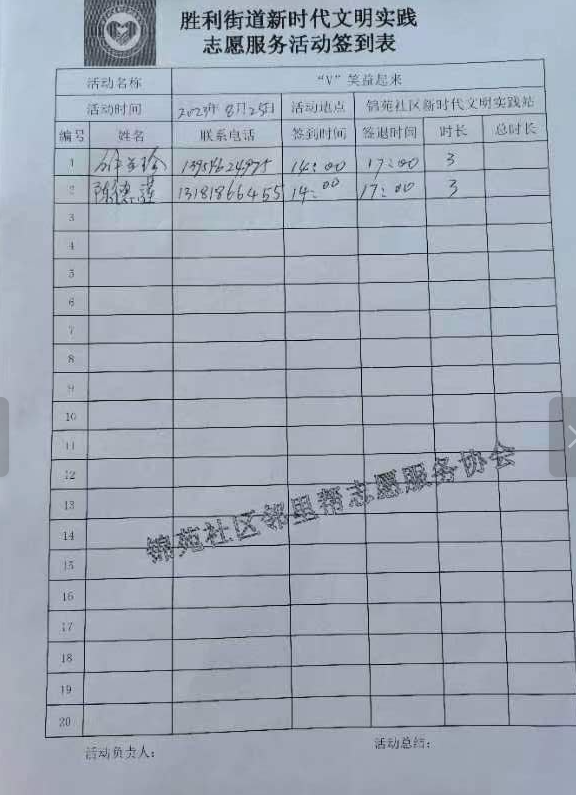 胜利街道新时代文明实践
志愿服务活动签到表
活动名称 “V”笑益起来
活动时间 2023年8月25日 活动地点 锦苑社区新时代文明实践站
编号 姓名 联系电话 签到时间 签退时间 时长 总时长
1 14:00 17:00 3
2 陈德谨 13181866455 14:00 17:00 3
3
4
5
6
7
8
9
10
11
12
13
14
15
16
17
18
19
20
锦苑社区邻里帮志愿服务协会
活动负责人: 活动总结: